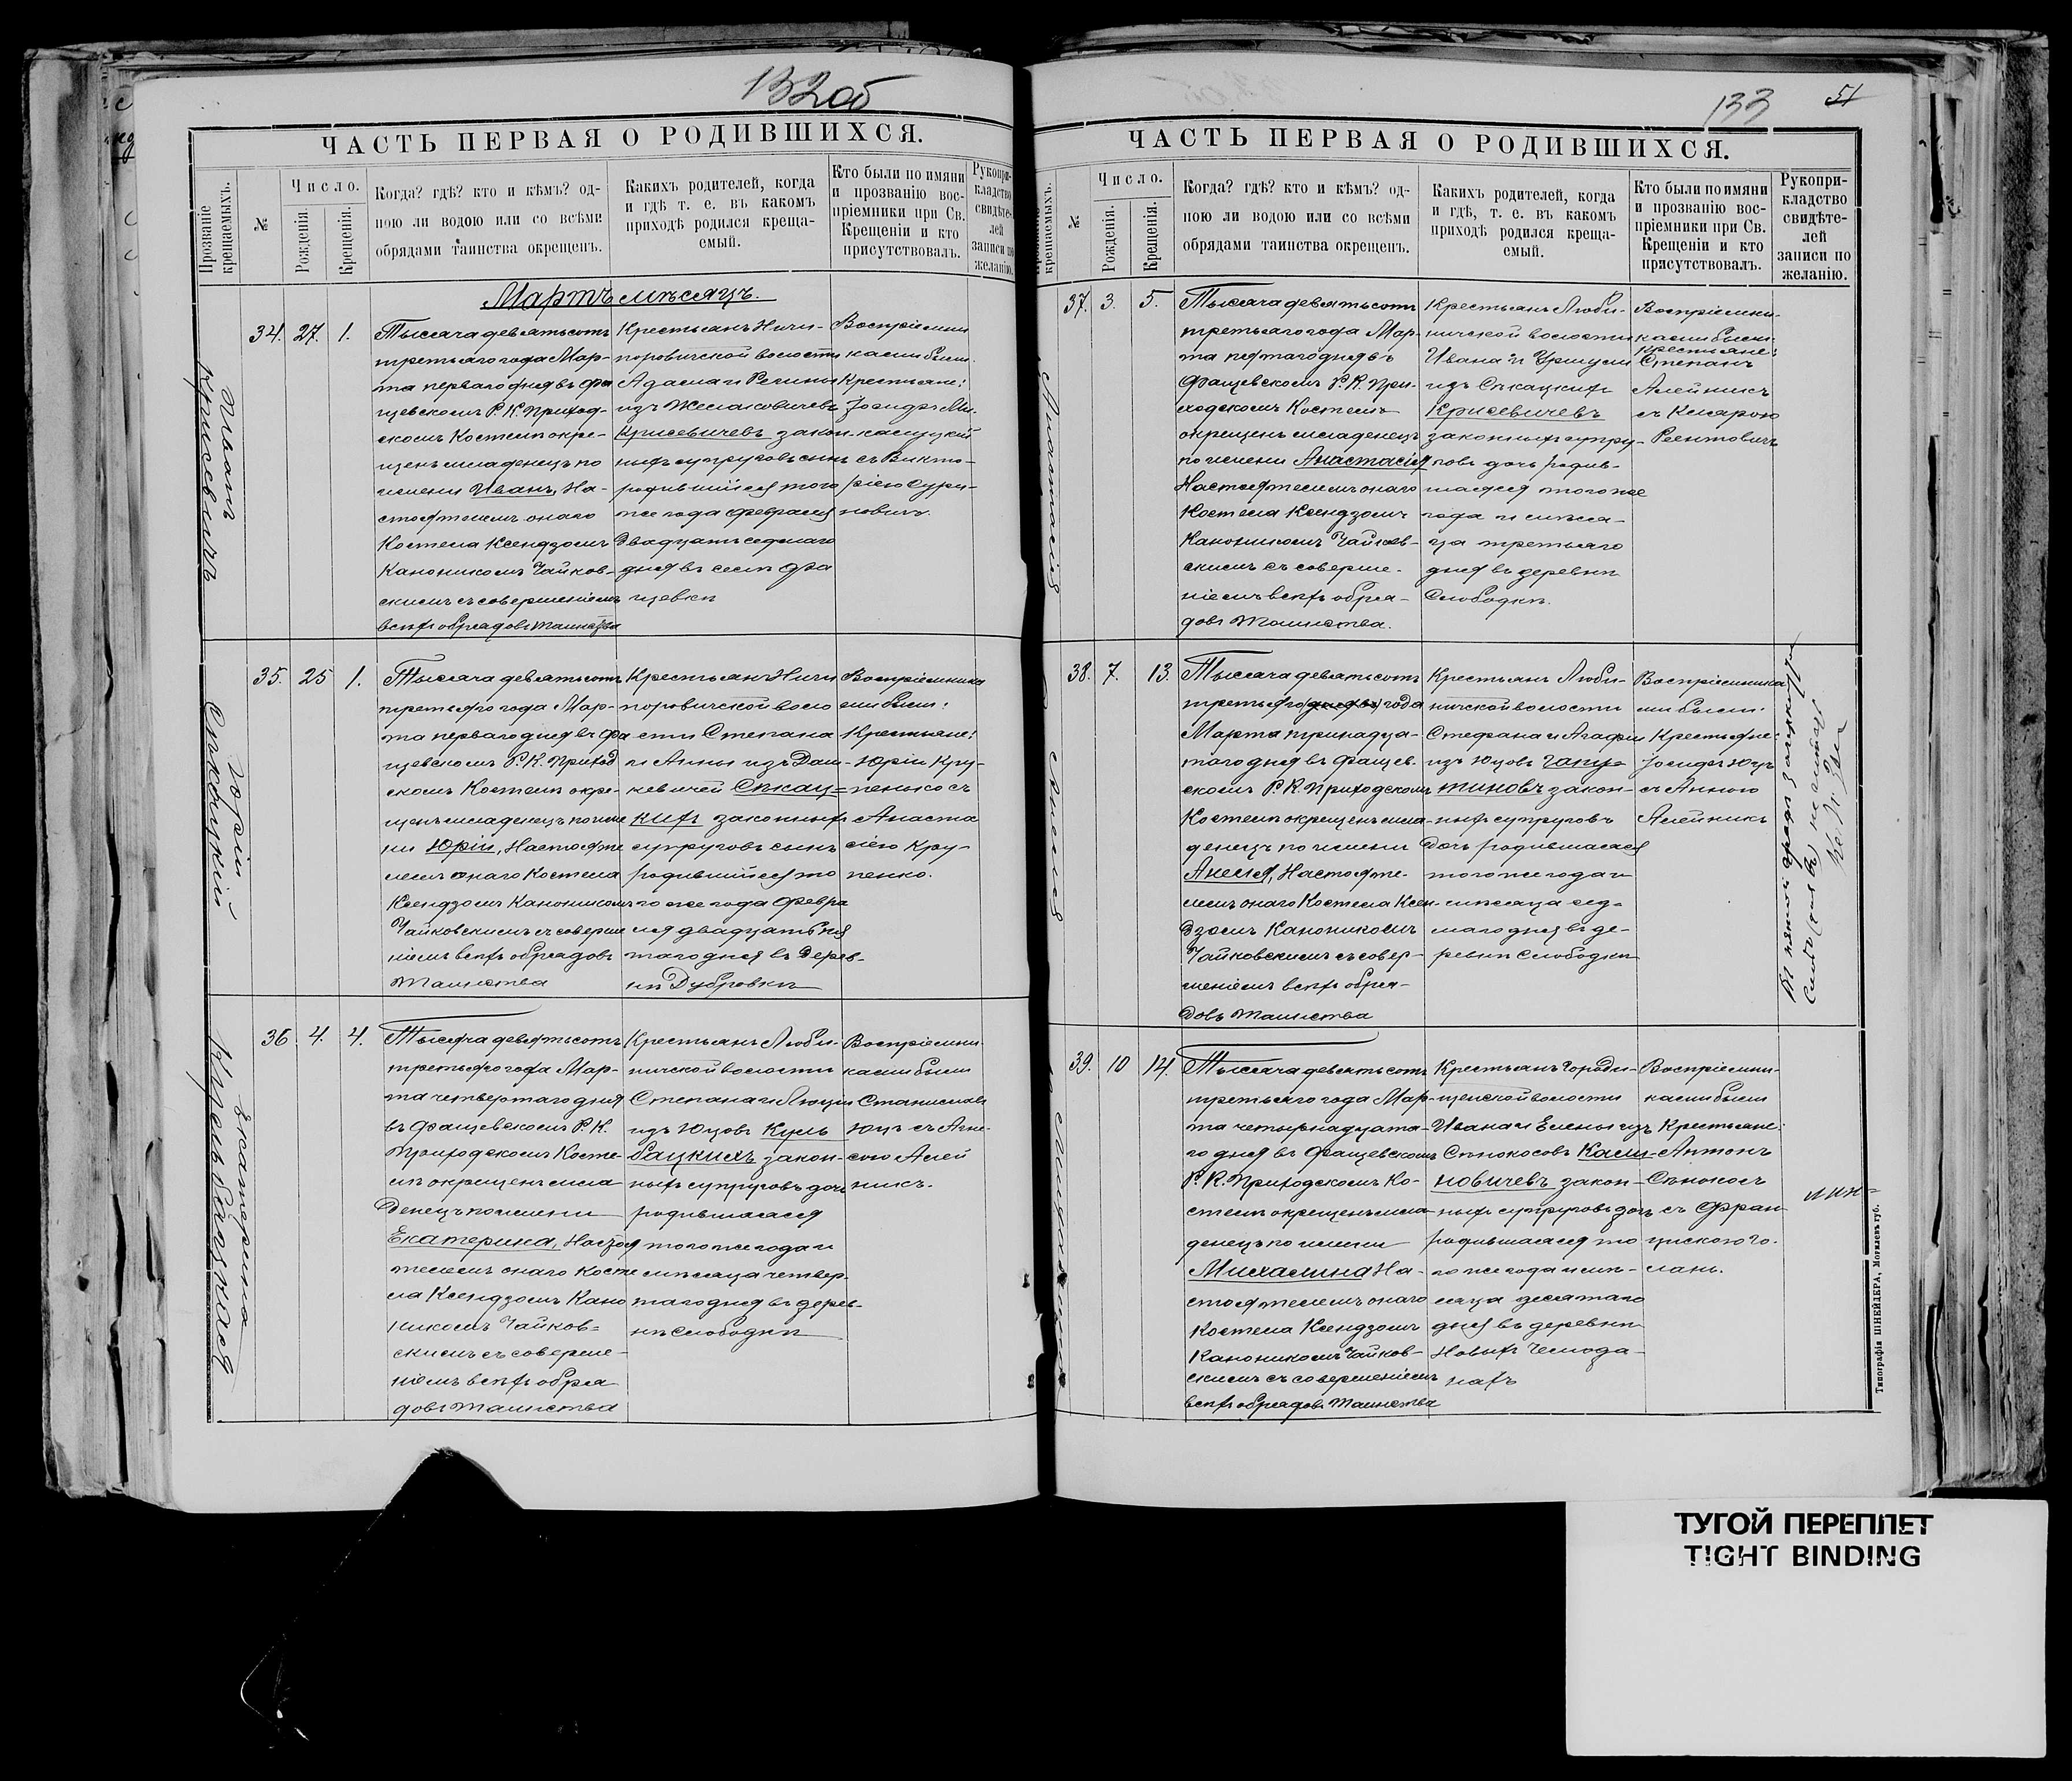 132об
ЧАСТЬ ПЕРВАЯ О РОДИВШИХСЯ.
Прозваніе крещаемыхъ.
№
Число.
Рожденія.
Крещенія.
Когда? гдѣ? кто и кѣмъ? од-
ною ли водою или со всѣми
обрядами таинства окрещенъ.
Какихъ родителей, когда
и гдѣ т. е. въ какомъ
приходѣ родился креща-
емый.
Кто были по имяни
и прозванію вос-
пріемники при Св.
Крещеніи и кто
присутствовалъ.
Рукопри-
кладство
свидѣте-
лей
записи по
желанію.
Мартъ мѣсяцъ.
Иванъ
Крисевичъ
34. 27. 1.
Тысяча девятьсотъ
третьяго года Мар-
та перваго дня въ Фа
щевскомъ Р. К. Приход-
скомъ Костелѣ окре-
щенъ младенецъ по
имени Иванъ, На-
стоятелемъ онаго
Костела Ксендзомъ
Каноникомъ Чайков-
скимъ съ совершеніемъ
всѣхъ обрядовъ таинства
Крестьянъ Ничи-
поровичской волости
Адама и Регины
изъ Жемановичевъ
Крисевичевъ закон-
ныхъ супруговъ сынъ
родившійся того
же года Февраля
двадцать седьмаго
дня въ селѣ Фа
щевкѣ
Воспріемни
ками были
Крестьяне:
Іосифъ Ми-
калуцкій
съ Викто-
ріею Сури-
новичъ.
Юрій
Сѣкацкій
35. 25 1.
Тысяча девятьсотъ
третьяго года Мар-
та перваго дня въ Фа
щевскомъ Р. К. Приход
скомъ Костелѣ окре-
щенъ младенецъ по име
ни Юрій, Настояте
лемъ онаго Костела
Ксендзомъ Каноникомъ
Чайковскимъ съ соверше
ніемъ всѣхъ обрядовъ
Таинства
Крестьянъ Ничи
поровичской воло
сти Степана
и Анны изъ Даш-
кевичей Сѣкац=
кихъ законныхъ
супруговъ сынъ
родившійся то
го же года Февра
ля двадцать пя
таго дня въ Дерев-
нѣ Дубровкѣ
Воспріемника
ми были:
Крестьяне:
Юрій Кру-
пенько съ
Анаста
сіею Кру-
пенко.
Екатерина
Кульбацкихъ
36 4. 4.
Тысяча девятьсотъ
третьяго года Мар-
та четвертаго дня
въ Фащевскомъ Р. К.
Приходскомъ Косте-
лѣ окрещенъ мла
денецъ по имени
Екатерина, Настоя
телемъ онаго Косте
ла Ксендзомъ Кано
никомъ Чайков=
скимъ съ соверше-
ніемъ всѣхъ обря
довъ Таинства
Крестьянъ Люби-
ничской волости
Степана и Люціи
изъ Юцовъ Куль
бацкихъ закон-
ныхъ супруговъ дочь
родившаяся
того же года и
мѣсяца четвер-
таго дня въ дерев-
нѣ Слободкѣ
Воспріемни-
ками были
Станиславъ
Юцъ съ Агне-
сою Алей
никъ.
133
51
ЧАСТЬ ПЕРВАЯ О РОДИВШИХСЯ.
крещаемыхъ.
№
Число.
Рожденія.
Крещенія.
Когда? гдѣ? кто и кѣмъ? од-
ною ли водою или со всѣми
обрядами таинства окрещенъ.
Какихъ родителей, когда
и гдѣ, т. е. въ какомъ
приходѣ родился креща-
емый.
Кто были по имяни
и прозванію вос-
пріемники при Св.
Крещеніи и кто
присутствовалъ.
Рукопри-
кладство
свидѣте-
лей
записи по
желанію.
Анастасія
37. 3. 5.
Тысяча девятьсотъ
третьяго года Мар-
та пятаго дня въ
Фащевскомъ Р. К. При-
ходскомъ Костелѣ
окрещенъ младенецъ
по имени Анастасія
Настоятелемъ онаго
Костела Ксендзомъ
Каноникомъ Чайков-
скимъ съ соверше-
ніемъ всѣхъ обря-
довъ Таинства.
Крестьянъ Люби-
ничской волости
Ивана и Уршули
изъ Сѣкацкихъ
Крисевичевъ
законныхъ супру-
говъ дочь родив-
шаяся того же
года и мѣся-
ца третьяго
дня въ деревнѣ
Слободкѣ.
Воспріемни-
ками были
крестьяне:
Степанъ
Алейникъ
съ Кларою
Реентовичъ
Анеля
38. 7. 13.
Тысяча девятьсотъ
третьяго (дня въ) года
Марта тринадца-
таго дня въ Фащев-
скомъ Р. К. Приходскомъ
Костелѣ окрещенъ мла-
денецъ по имени
Анеля, Настояте-
лемъ онаго Костела Ксен-
дзомъ Каноникомъ
Чайковскимъ съ совер-
шеніемъ всѣхъ обря-
довъ Таинства
Крестьянъ Люби-
ничской волости
Стефана и Агафіи
изъ Юцовъ Чапу=
тиновъ закон-
ныхъ супруговъ
дочь родившаяся
того же года и
мѣсяца сед-
маго дня въ де-
ревнѣ Слободкѣ
Воспріемника
ми были:
Крестьяне:
Іосифъ Юцъ
съ Анною
Алейникъ
Въ пятой графѣ зачеркнутыя
слова (дня въ) не читать
39. 10 14.
Тысяча девятьсотъ
третьяго года Мар-
та четырнадцата-
го дня въ Фащевскомъ
Р. К. Приходскомъ Ко-
стелѣ окрещенъ мла-
денецъ по имени
Михалина На-
стоятелемъ онаго
Костела Ксендзомъ
Каноникомъ Чайков-
скимъ съ совершеніемъ
всѣхъ обрядовъ Таинства
Крестьянъ Городи-
щенской волости
Ивана и Елены изъ
Сѣнокосовъ Кали-
новичевъ закон-
ныхъ супруговъ дочь
родившаяся то
го же года и мѣ-
сяца десятаго
дня въ деревнѣ
Новыхъ Чемода-
нахъ
Воспріемни-
ками были
Крестьяне:
Антонъ
Сѣнокосъ
съ Фран
цискою Го-
ланъ.
Типографія ШНЕЙДЕРА, Могилевъ губ.
ТУГОЙ ПЕРЕПЛЕТ
TIGHT BINDING